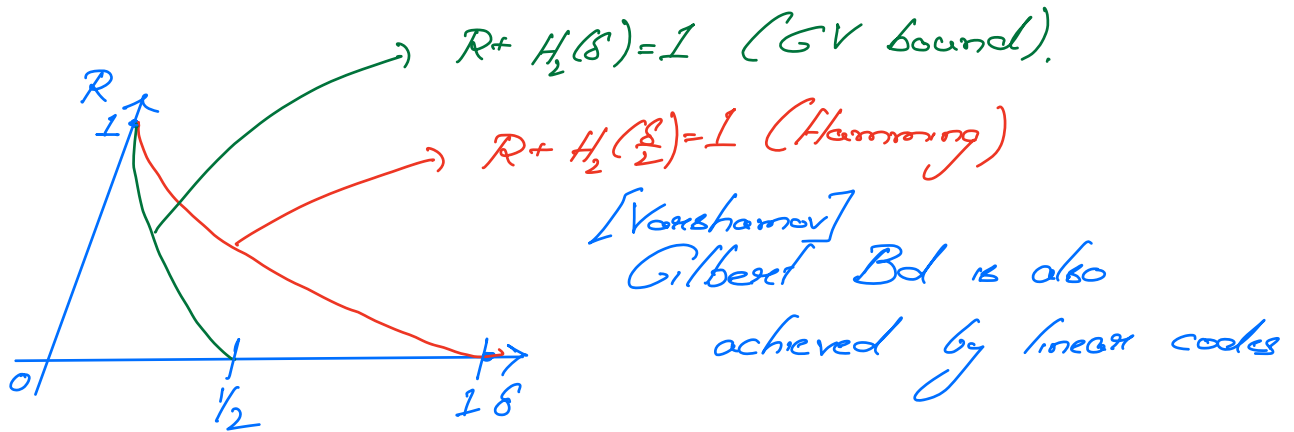 R+ H₂(δ)=1 (GV bound).
R
1
R+ H₂(δ/2)=1 (Hamming)
[Varshamov]
Gilbert Bd is also
achieved by linear codes
0
1/2
1 δ